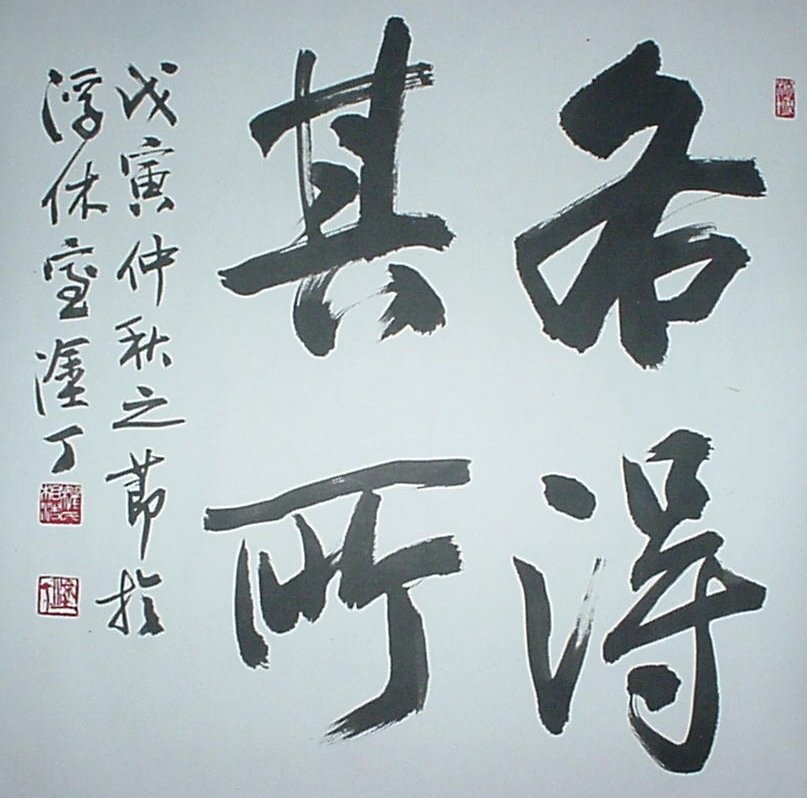 各得
其所
戊寅仲秋之節於
浮休室塗丁